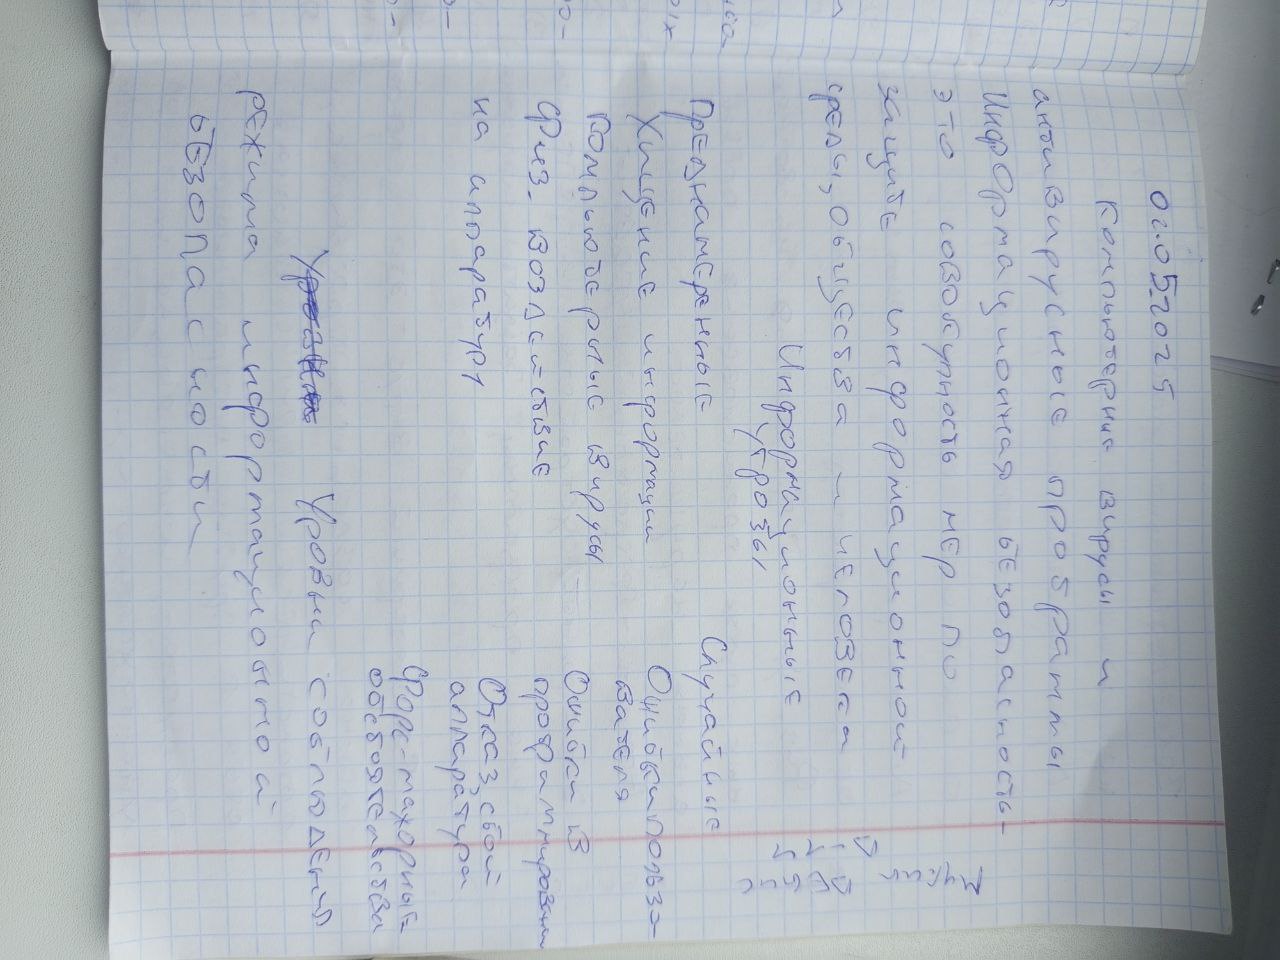 02.05.2025
Компьютерные вирусы и
антивирусные программы
Информационная безопасность-
это совокупность мер по
защите информационной
среды, общества и человека
Информационные
угрозы
Преднамеренные Случайные
Хищение информации Ошибки пользо-
вателя
Компьютерные вирусы Ошибки в
программировании
Физ. воздействие
на аппаратуру
Отказ, сбой
аппаратуры
Форс-мажорные
обстоятельства
Уровни соблюдения
режима информационной
безопасности